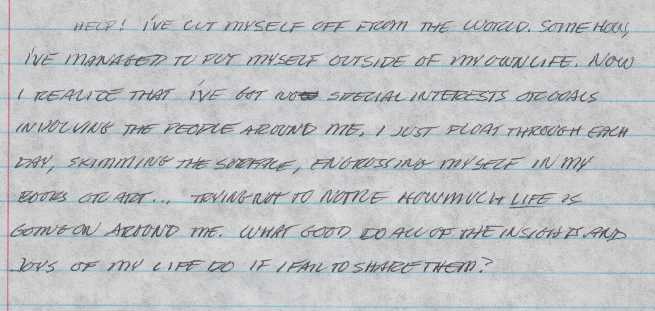 HELP! I'VE CUT MYSELF OFF FROM THE WORLD. SOMEHOW,
I'VE MANAGED TO PUT MYSELF OUTSIDE OF MY OWN LIFE. NOW
I REALIZE THAT I'VE GOT NO SPECIAL INTERESTS OR GOALS
INVOLVING THE PEOPLE AROUND ME, I JUST FLOAT THROUGH EACH
DAY, SKIMMING THE SURFACE, ENGROSSING MYSELF IN MY
BOOKS OR ART... TRYING NOT TO NOTICE HOW MUCH LIFE IS
GOING ON AROUND ME. WHAT GOOD DO ALL OF THE INSIGHTS AND
JOYS OF MY LIFE DO IF I FAIL TO SHARE THEM?